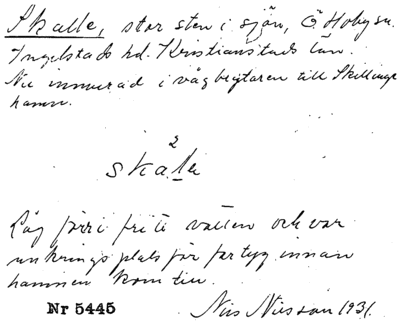 Skalle, stor sten i sjön, Ö Hoby sn.
Ingelstads hd. Kristianstads län.
Nu inmurad i vågbrytaren till Skillinge
hamn.
2
skale
Låg förr i fritt vatten och var
ankringsplats för fartyg innan
hamnen kom till.
Nr 5445 Nils Nilsson 1931.